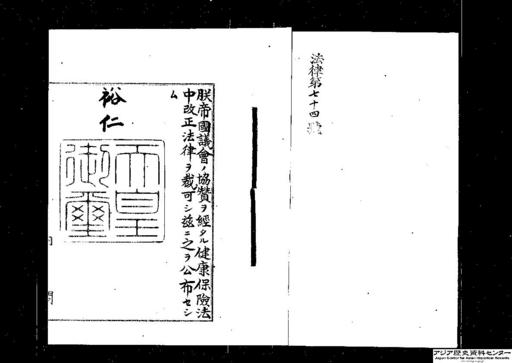 法律第七十四號
朕帝國議會ノ協贊ヲ經タル健康保險法
中改正法律ヲ裁可シ茲ニ之ヲ公布セシ
ム
裕仁
天皇
御璽
アジア歴史資料センター
Japan Center for Asian Historical Records